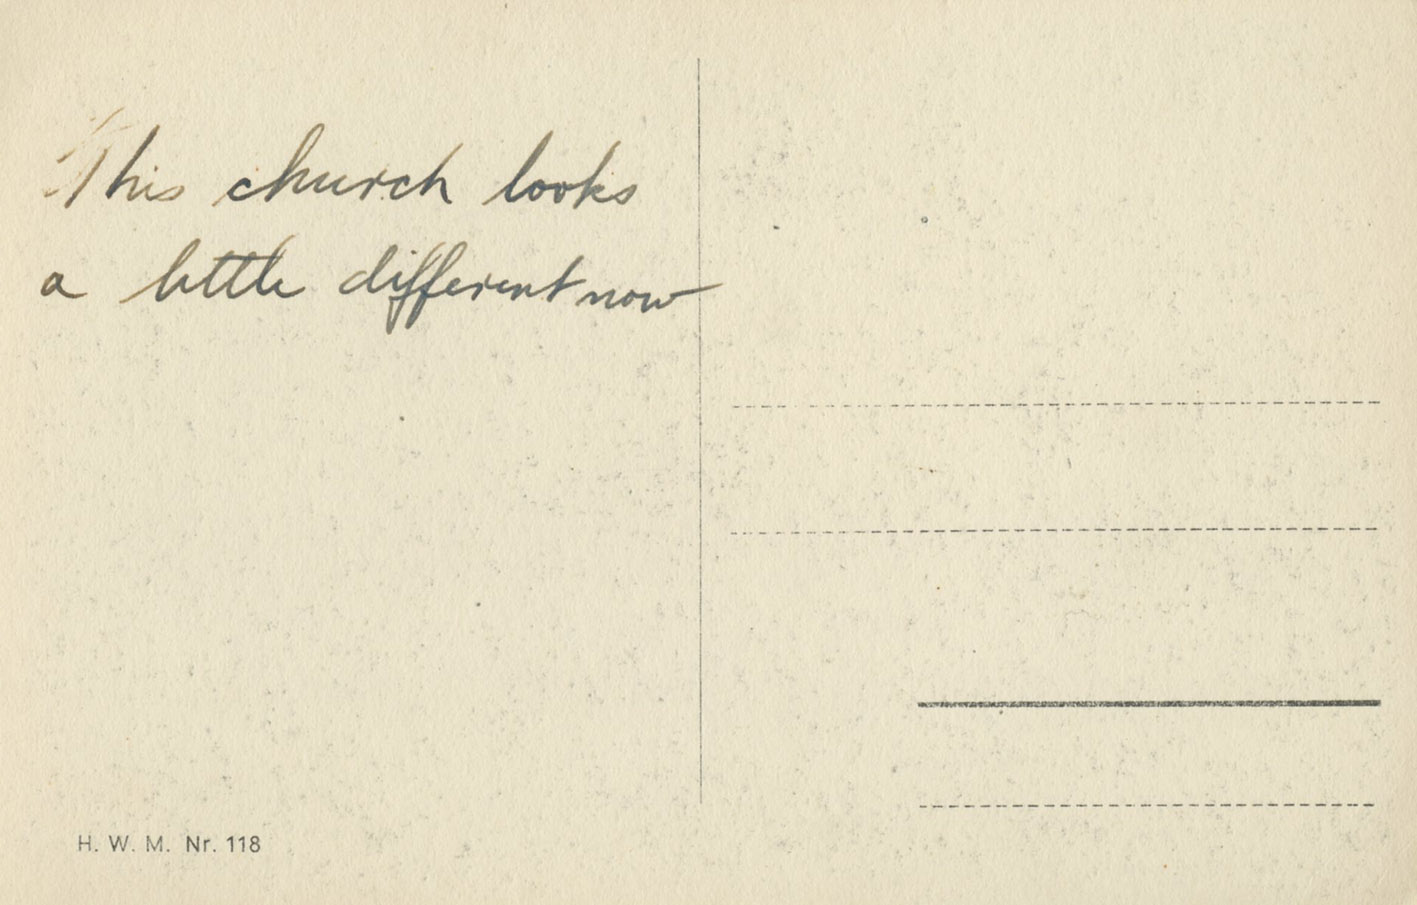 This church looks
a little different now
H. W. M. Nr. 118